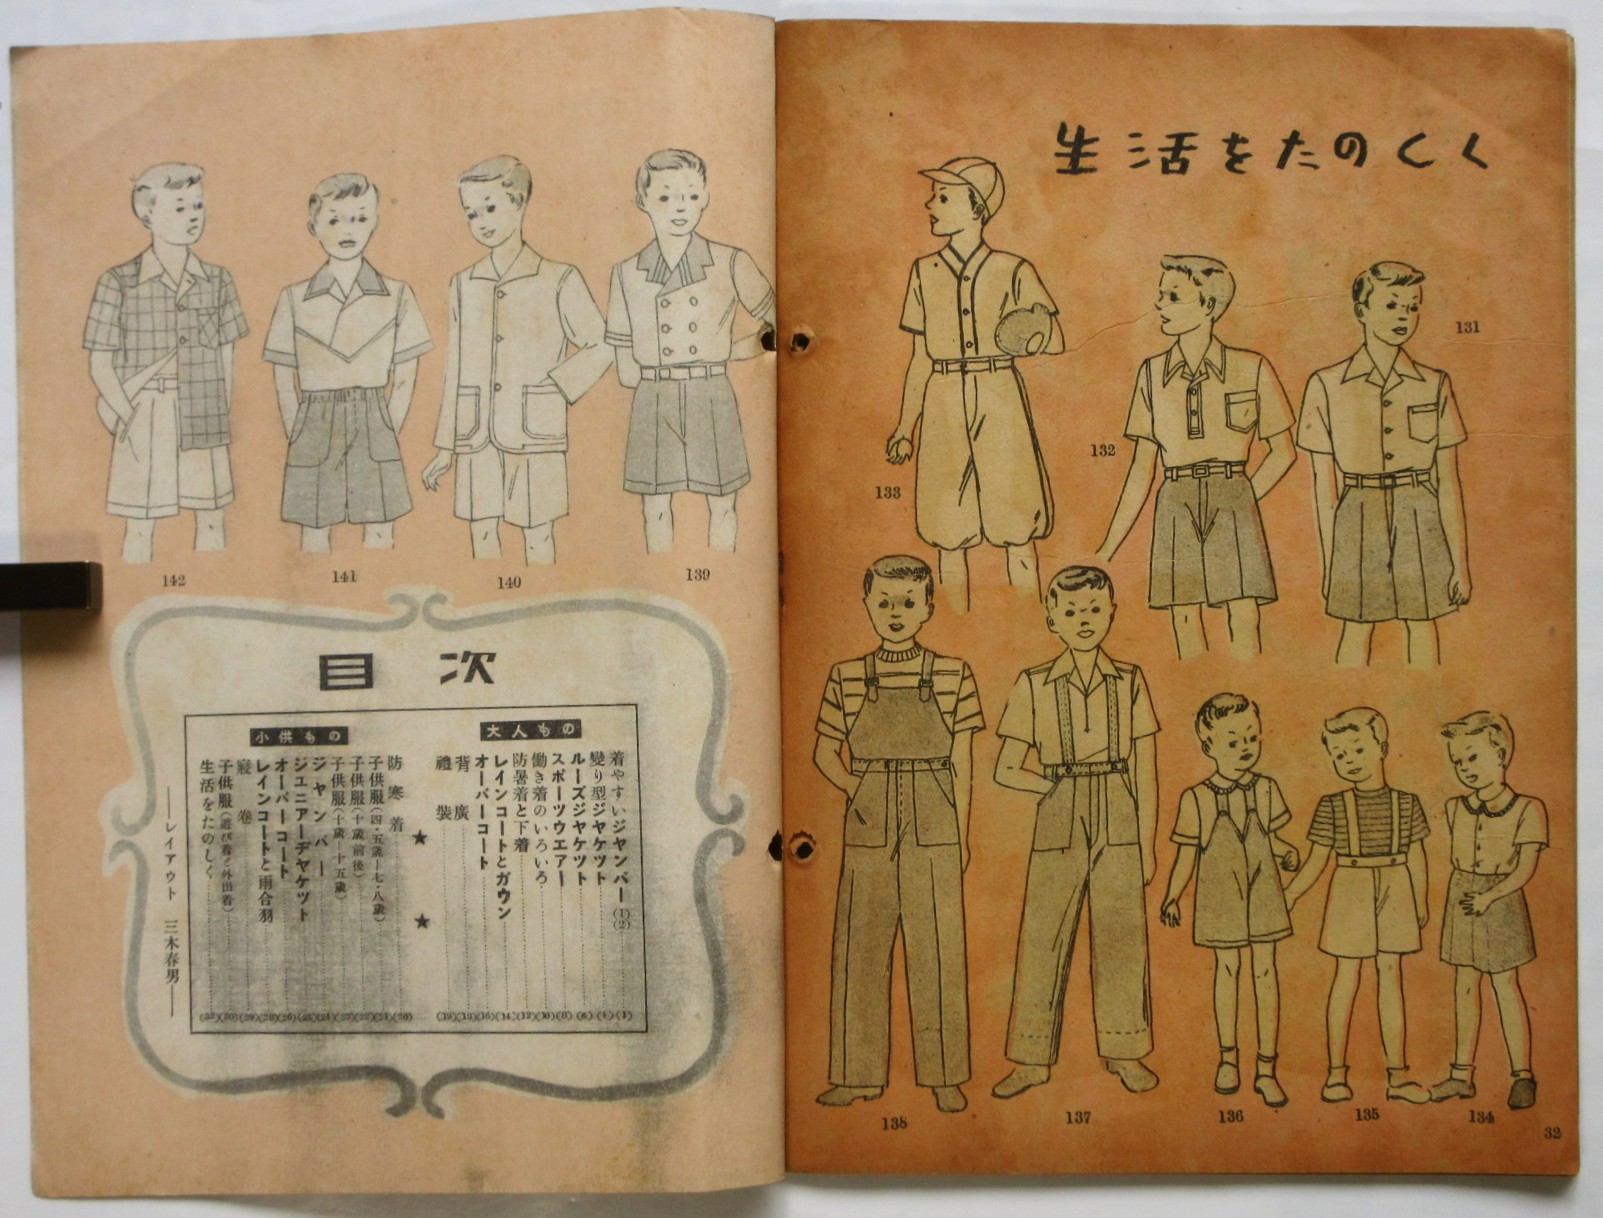 生活をたのしく
131
132
133
134
135
136
137
138
32
139
140
141
142
目次
大人もの
着やすいジヤンパー(1)(2)
變り型ジヤケツト
ルーズジヤケツト
スポーツウエアー
働き着のいろいろ
防暑着と下着
レインコートとガウン
オーバーコート
背廣
禮裝
★ ★
小供もの
防寒着
子供服(四・五歳―七・八歳)
子供服(十歳前後)
子供服(十歳―十五歳)
ジヤンパー
ジユニアーヂヤケツト
オーバーコート
レインコートと雨合羽
寢卷
子供服(遊び着と外出着)
生活をたのしく
―レイアウト 三木春男―